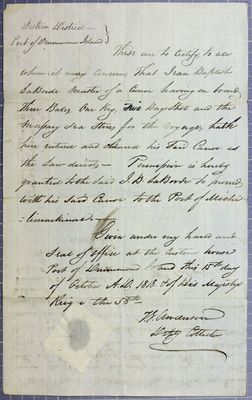 Western District
Port of Drummond Island }
These are to Certify to all
whom it may Concern, That Jean Baptist
LaBorde Master of a Canoe having on board,
Three Bales, One Keg, Bags Shot and the
Necessary Sea Stores for the Voyage, hath
here entered and cleared his said Canoe as
the Law directs — Permission is hereby
granted to the said J B LaBorde to proceed
with his said Canoe to the Port of Michi-
-limackinac —
Given under my hand and
Seal of Office at the Custom house
Port of Drummond Island this 15th day
of October A.D. 1818 & of His Majestys
Reign the 58th —
Anderson
Depty Collector